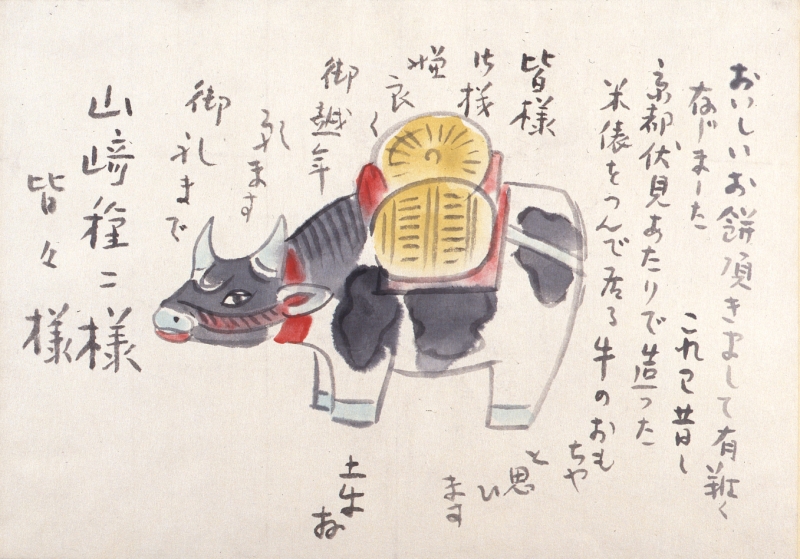 おいしいお餅頂きまして有難く
存じました
これハ昔し
京都伏見あたりで造った
米俵をつんで居る牛のおも
ちや
と思ひ
ます
皆様
御機
嫌
良く
御越年
祈ます
御礼まで
土牛
山﨑種二様
皆々様